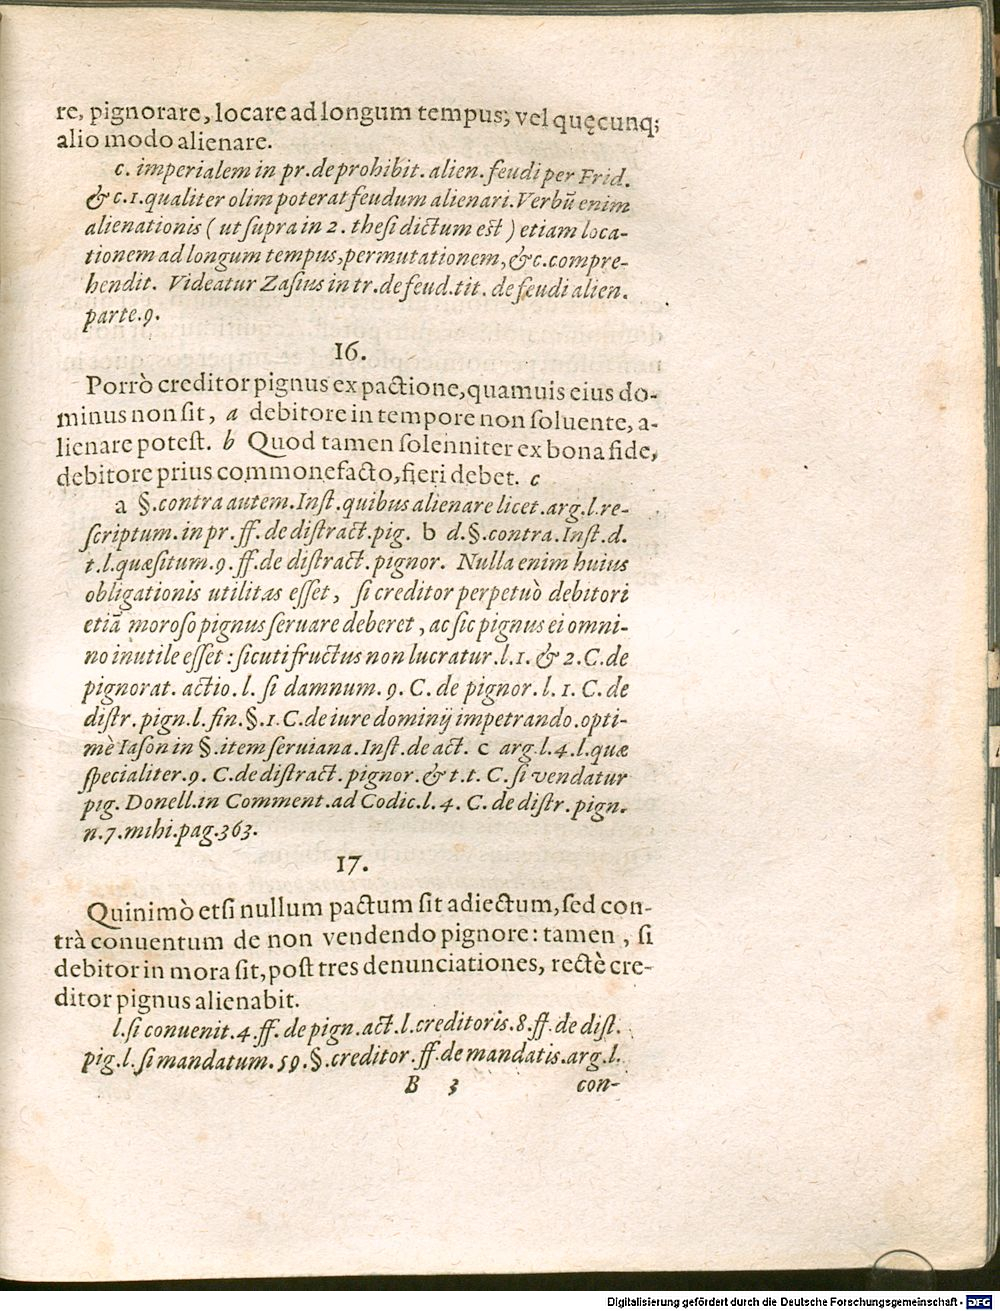 re, pignorare, locare ad longum tempus, vel quęcunq;
alio modo alienare.
c. imperialem in pr. de prohibit. alien. feudi per Frid.
& c. 1. qualiter olim poterat feudum alienari. Verbū enim
alienationis ( ut supra in 2. thesi dictum est ) etiam loca-
tionem ad longum tempus, permutationem, &c. compre-
hendit. Videatur Zasius in tr. de feud. tit. de feudi alien.
parte. 9.
16.
Porrò creditor pignus ex pactione, quamuis eius do-
minus non sit, a debitore in tempore non soluente, a-
lienare potest. b Quod tamen solenniter ex bona fide,
debitore prius commonefacto, fieri debet. c
a §. contra autem. Inst. quibus alienare licet. arg. l. re-
scriptum. in pr. ff. de distract. pig. b d. §. contra. Inst. d.
t. l. quæsitum. 9. ff. de distract. pignor. Nulla enim huius
obligationis utilitas esset, si creditor perpetuò debitori
etiā moroso pignus seruare deberet, ac sic pignus ei omni-
no inutile esset: sicuti fructus non lucratur. l. 1. & 2. C. de
pignorat. actio. l. si damnum. 9. C. de pignor. l. 1. C. de
distr. pign. l. fin. §. 1. C. de iure dominij impetrando. opti-
mè Iason in §. item seruiana. Inst. de act. c arg. l. 4. l. quæ
specialiter. 9. C. de distract. pignor. & t. t. C. si vendatur
pig. Donell. in Comment. ad Codic. l. 4. C. de distr. pign.
n. 7. mihi. pag. 363.
17.
Quinimò etsi nullum pactum sit adiectum, sed con-
trà conuentum de non vendendo pignore: tamen, si
debitor in mora sit, post tres denunciationes, rectè cre-
ditor pignus alienabit.
l. si conuenit. 4. ff. de pign. act. l. creditoris. 8. ff. de dist.
pig. l. si mandatum. 59. §. creditor. ff. de mandatis. arg. l.
B 3 con-
Digitalisierung gefördert durch die Deutsche Forschungsgemeinschaft - DFG